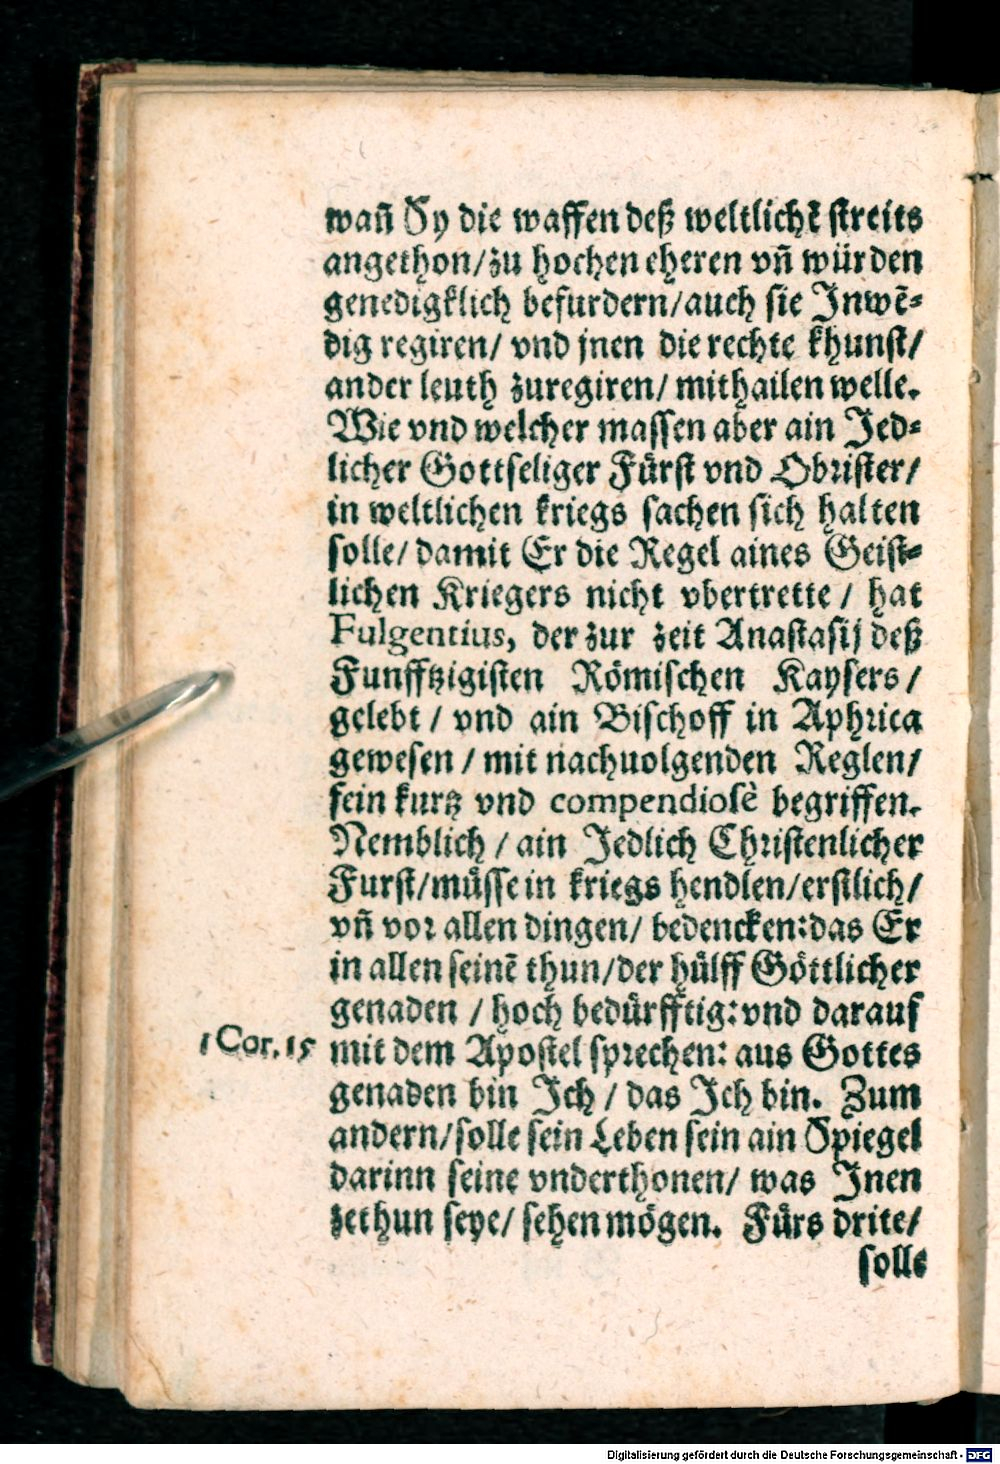 wañ Sy die waffen deß weltlichẽ streits
angethon/zu hochen eheren vñ würden
genedigklich befurdern/auch sie Inwẽ⸗
dig regiren/ vnd jnen die rechte khunst/
ander leuth zuregiren/ mithailen welle.
Wie vnd welcher massen aber ain Jed⸗
licher Gottseliger Fürst vnd Obrister/
in weltlichen kriegs sachen sich halten
solle/ damit Er die Regel aines Geist⸗
lichen Kriegers nicht vbertrette / hat
Fulgentius, der zur zeit Anastasij deß
Funfftzigisten Römischen Kaysers/
gelebt / vnd ain Bischoff in Aphrica
gewesen / mit nachuolgenden Reglen/
fein kurtz vnd compendiosè begriffen.
Nemblich / ain Jedlich Christenlicher
Furst/müsse in kriegs hendlen/erstlich/
vñ vor allen dingen/ bedencken:das Er
in allen seinẽ thun/der hülff Göttlicher
genaden / hoch bedürfftig:vnd darauf
1 Cor. 15
mit dem Apostel sprechen: aus Gottes
genaden bin Ich / das Ich bin. Zum
andern/solle sein Leben sein ain Spiegel
darinn seine vnderthonen/ was Inen
zethun seye/ sehen mögen. Fürs drite/
solle
Digitalisierung gefördert durch die Deutsche Forschungsgemeinschaft - DFG